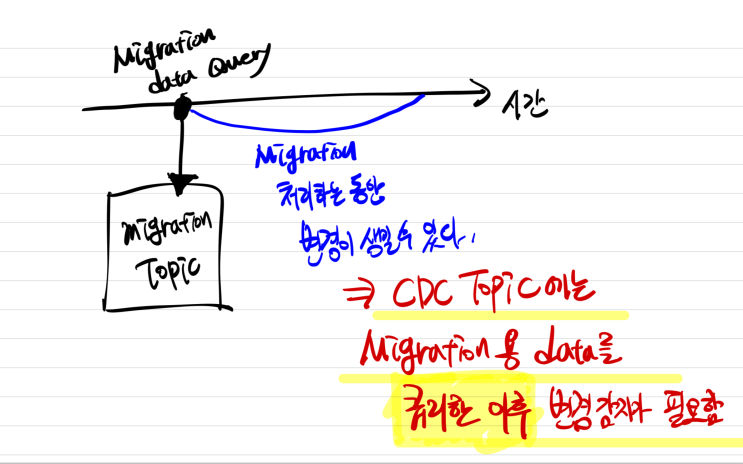 Migration
data Query
시간
Migration
처리하는 동안
변경이 생길 수 있다.
Migration
Topic
⇒ CDC Topic에는
Migration용 data를
쿼리한 이후 변경감지가 필요함